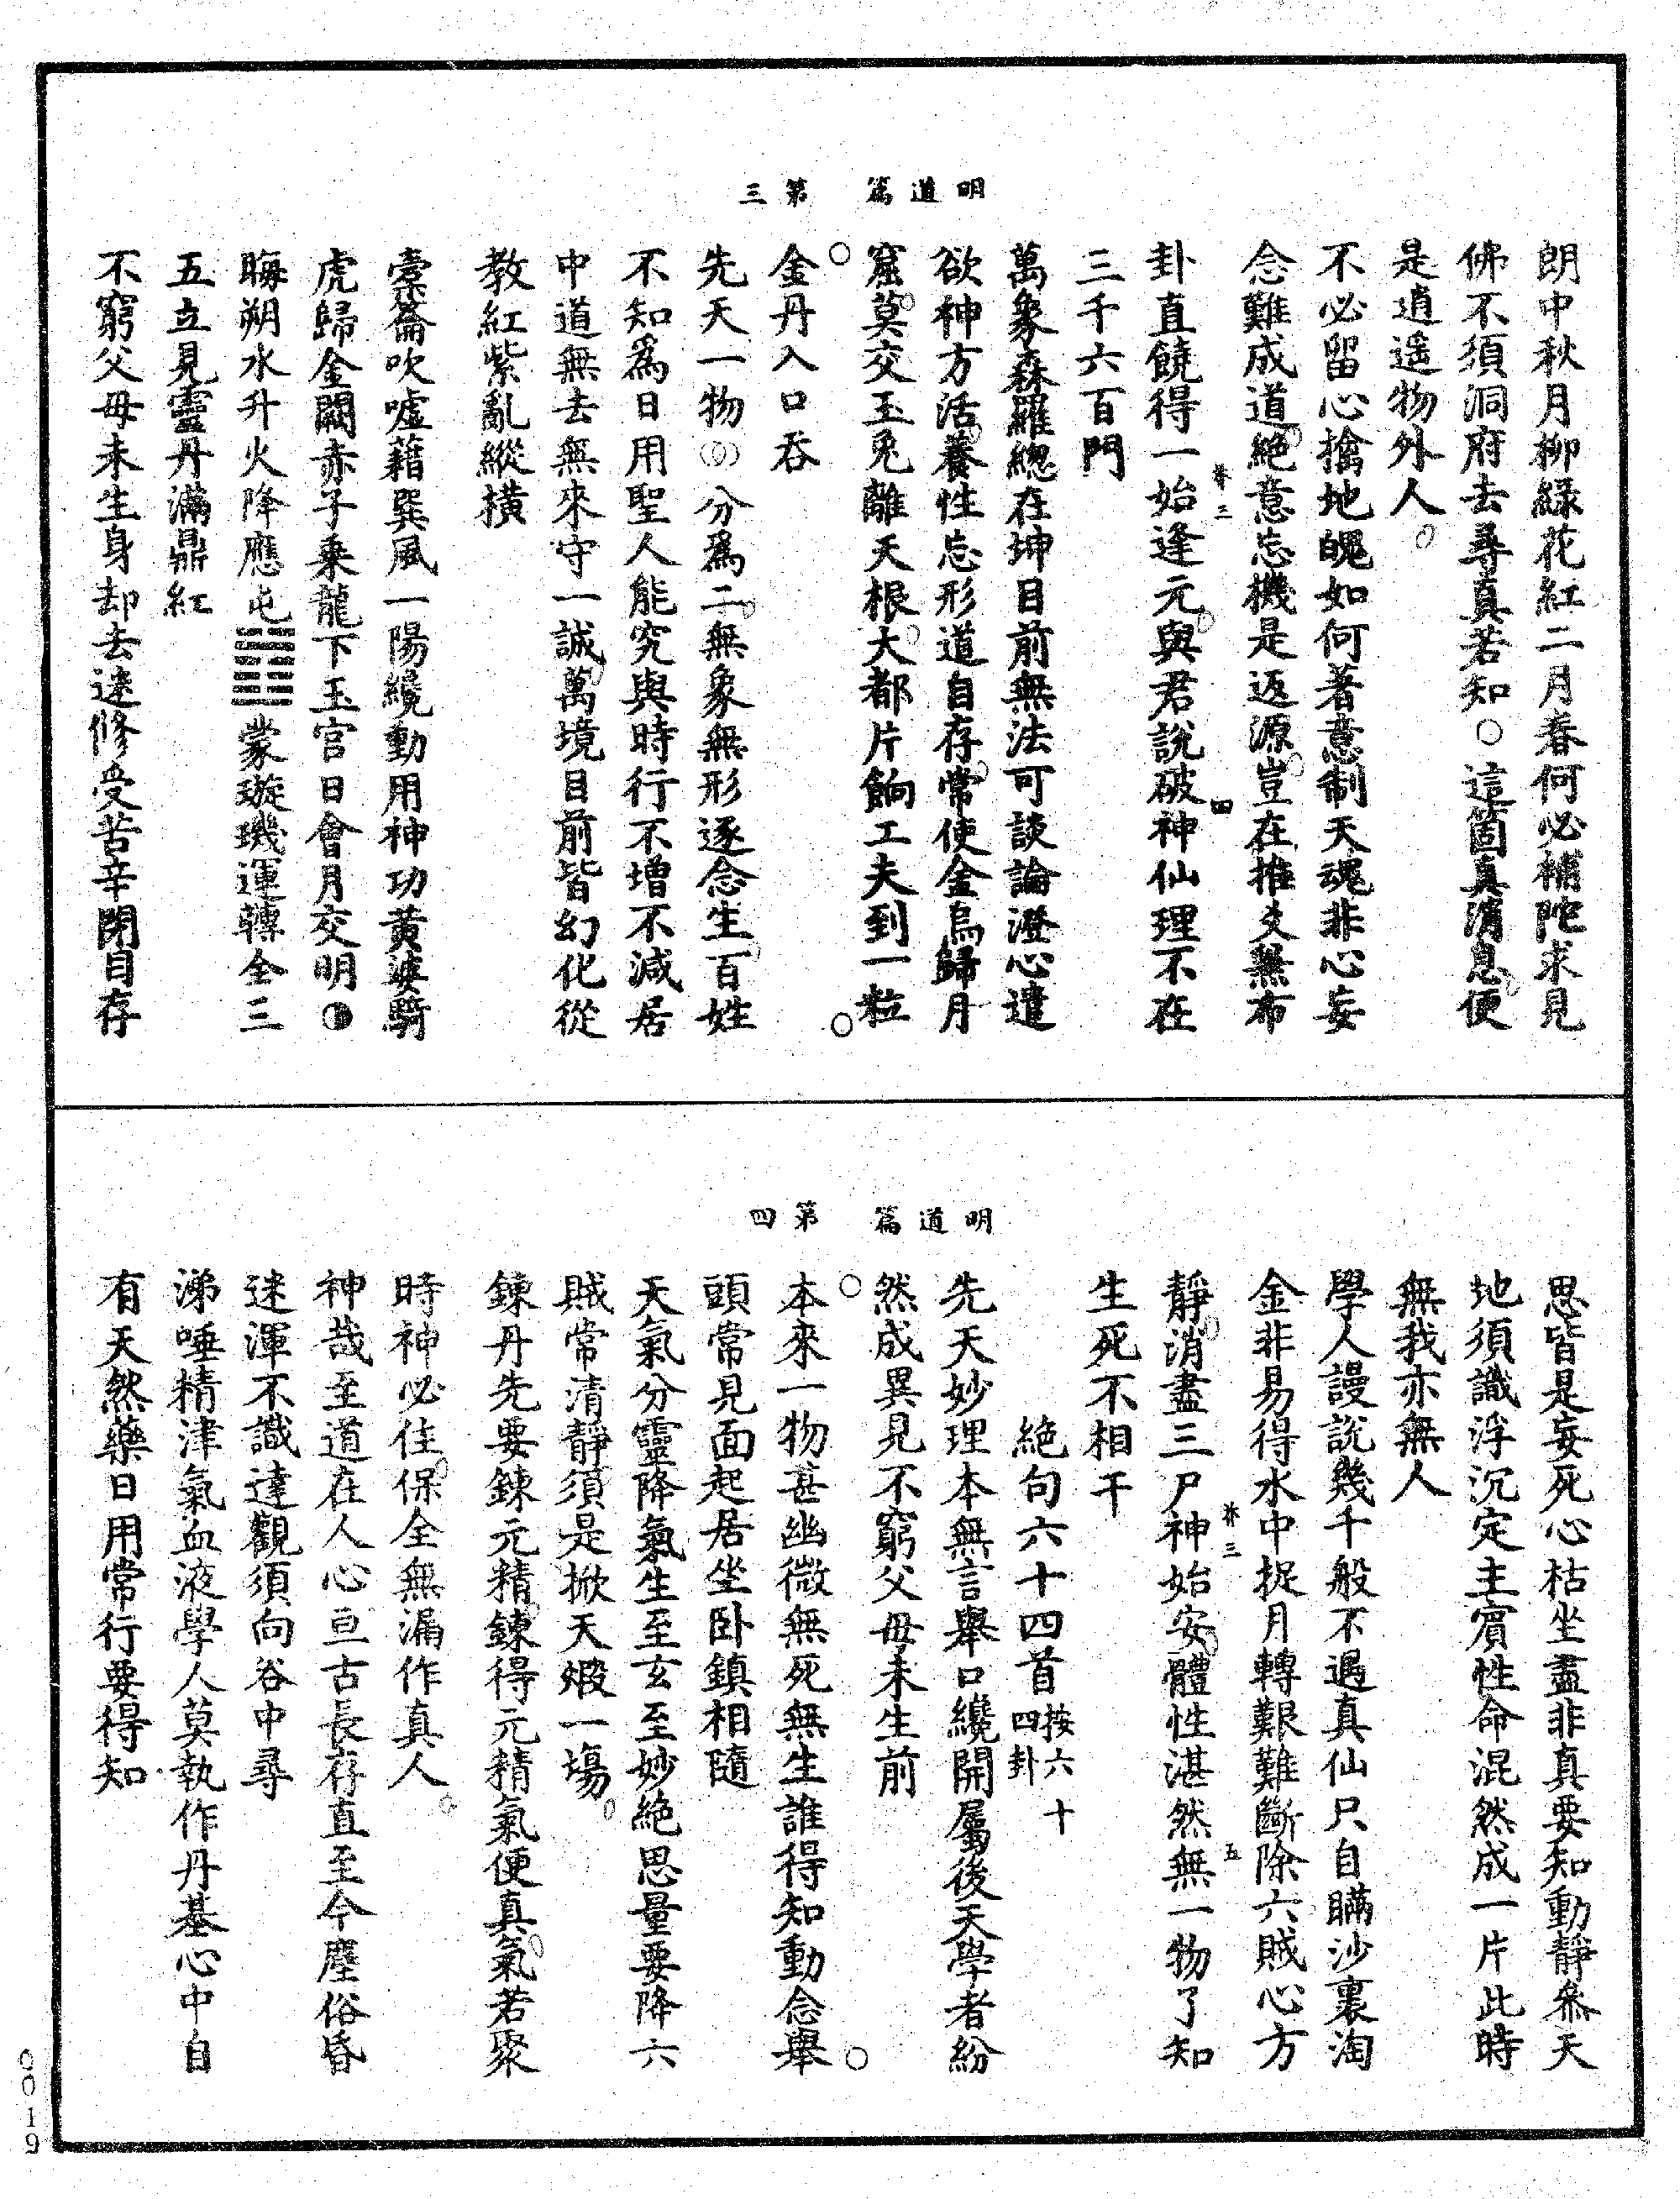 明道篇　第三
朗中秋月柳綠花紅二月春何必補陀求見
佛不須洞府去尋真若知○這箇真消息便
是逍遥物外人
不必留心擒地魄如何著意制天魂非心妄
念難成道絕意忘機是返源豈在推爻無布
卦直饒得一始逢元與君說破神仙理不在
三千六百門
萬象森羅緫在坤目前無法可談論澄心遣
欲神方活養性忘形道自存常使金烏歸月
窟莫交玉兎離天根大都片餉工夫到一粒
金丹入口吞
先天一物分爲二無象無形逐念生百姓
不知爲日用聖人能究與時行不增不減居
中道無去無來守一誠萬境目前皆幻化從
教紅紫亂縱横
橐籥吹噓藉巽風一陽纔動用神功黄婆騎
虎歸金闕赤子乗龍下玉宫日會月交明◑
晦朔水升火降應屯䷂䷃蒙璇璣運轉全三
五立見靈丹滿鼎紅
不窮父母未生身却去迷修受苦辛閉目存
明道篇　第四
思皆是妄死心枯坐盡非真要知動靜叅天
地須識浮沉定主賓性命混然成一片此時
無我亦無人
學人謾說幾千般不遇真仙只自瞞沙裏淘
金非易得水中捉月轉艱難斷除六賊心方
靜消盡三尸神始安體性湛然無一物了知
生死不相干
絕句六十四首按六十四卦
先天妙理本無言舉口纔開屬後天學者紛
然成異見不窮父母未生前
本來一物甚幽微無死無生誰得知動念舉
頭常見面起居坐卧鎮相隨
天氣分靈降氣生至玄至妙絕思量要降六
賊常清靜須是掀天煅一塲
鍊丹先要鍊元精鍊得元精氣便真氣若聚
時神必住保全無漏作真人
神哉至道在人心亘古長存直至今塵俗昏
迷渾不識達觀須向谷中尋
涕唾精津氣血液學人莫執作丹基心中自
有天然藥日用常行要得知
卷三　四
卷三　五
0019